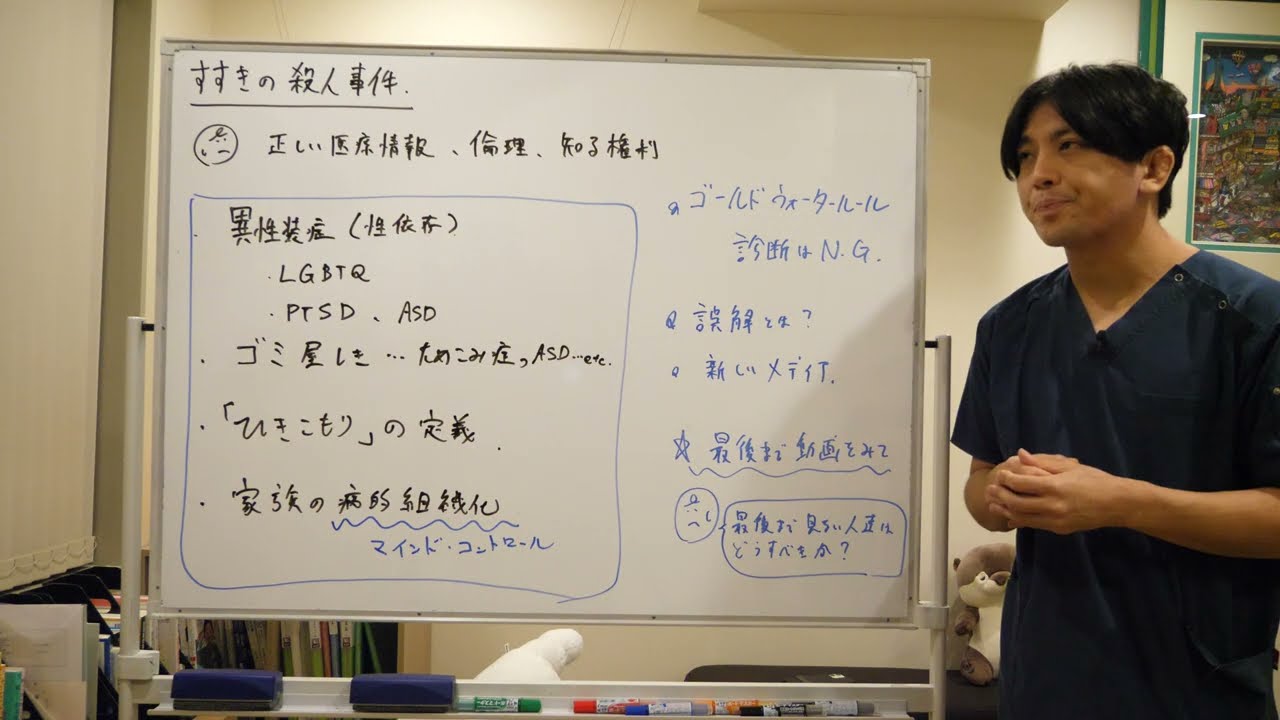 すすきの殺人事件.
正しい医療情報、倫理、知る権利
・異性装症(性依存)
・LGBTQ
・PTSD、ASD
・ゴミ屋しき…ためこみ症、ASD…etc.
・「ひきこもり」の定義.
・家族の病的組織化
マインド・コントロール
ゴールドウォータールール
診断はN.G.
誤解とは?
新しいメディア.
☆最後まで動画をみて
最後まで見ない人達は
どうすべきか?